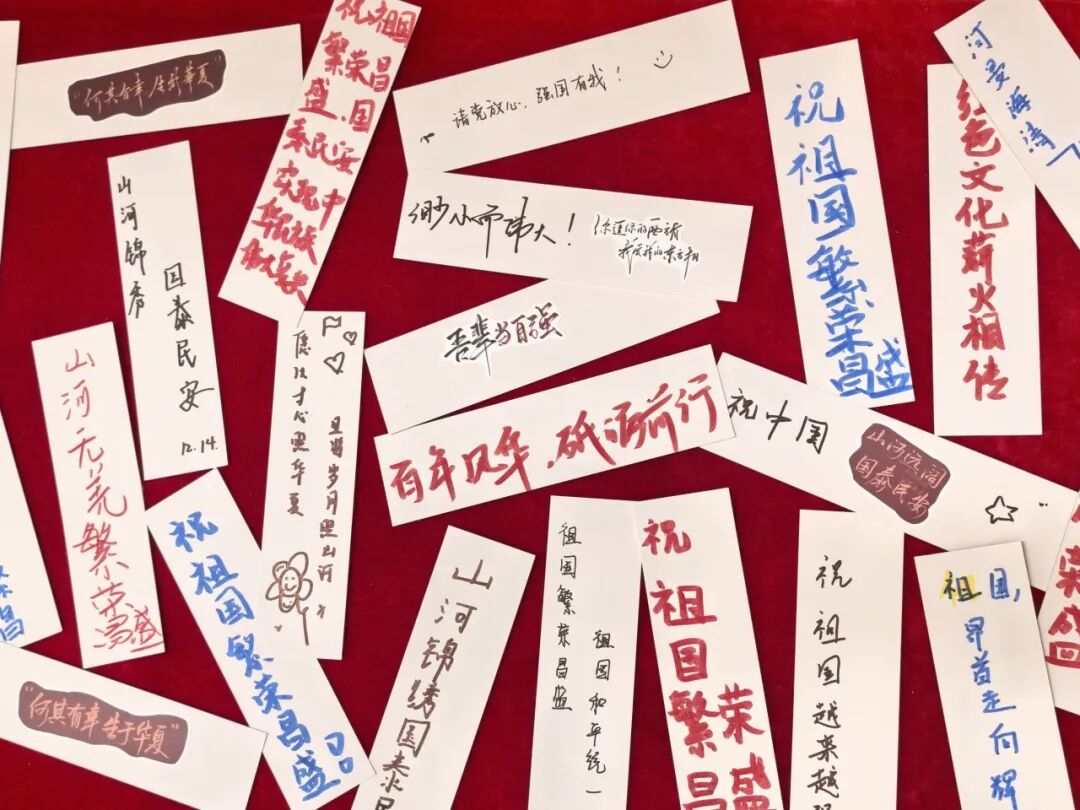 "何其有幸 生于華夏"
祝祖国
繁荣昌
盛,国
泰民安
实现中
华民族
请党放心,强国有我!
祝祖国繁荣昌盛
红色文化薪火相传
山河锦秀
国泰民安
12.14.
渺小而伟大!
吾辈当自强
百年风华,砥砺前行
祝中国
山河远阔
国泰民安
山河无恙繁荣昌盛
愿以寸心照华夏
且将岁月照山河
祝祖国繁荣昌盛
山河锦绣国泰民
祖国繁荣昌盛
祖国和平统一
祝祖国繁荣昌盛
祝祖国越来越
祖国,
昂首走向辉
"何其有幸 生于华夏"